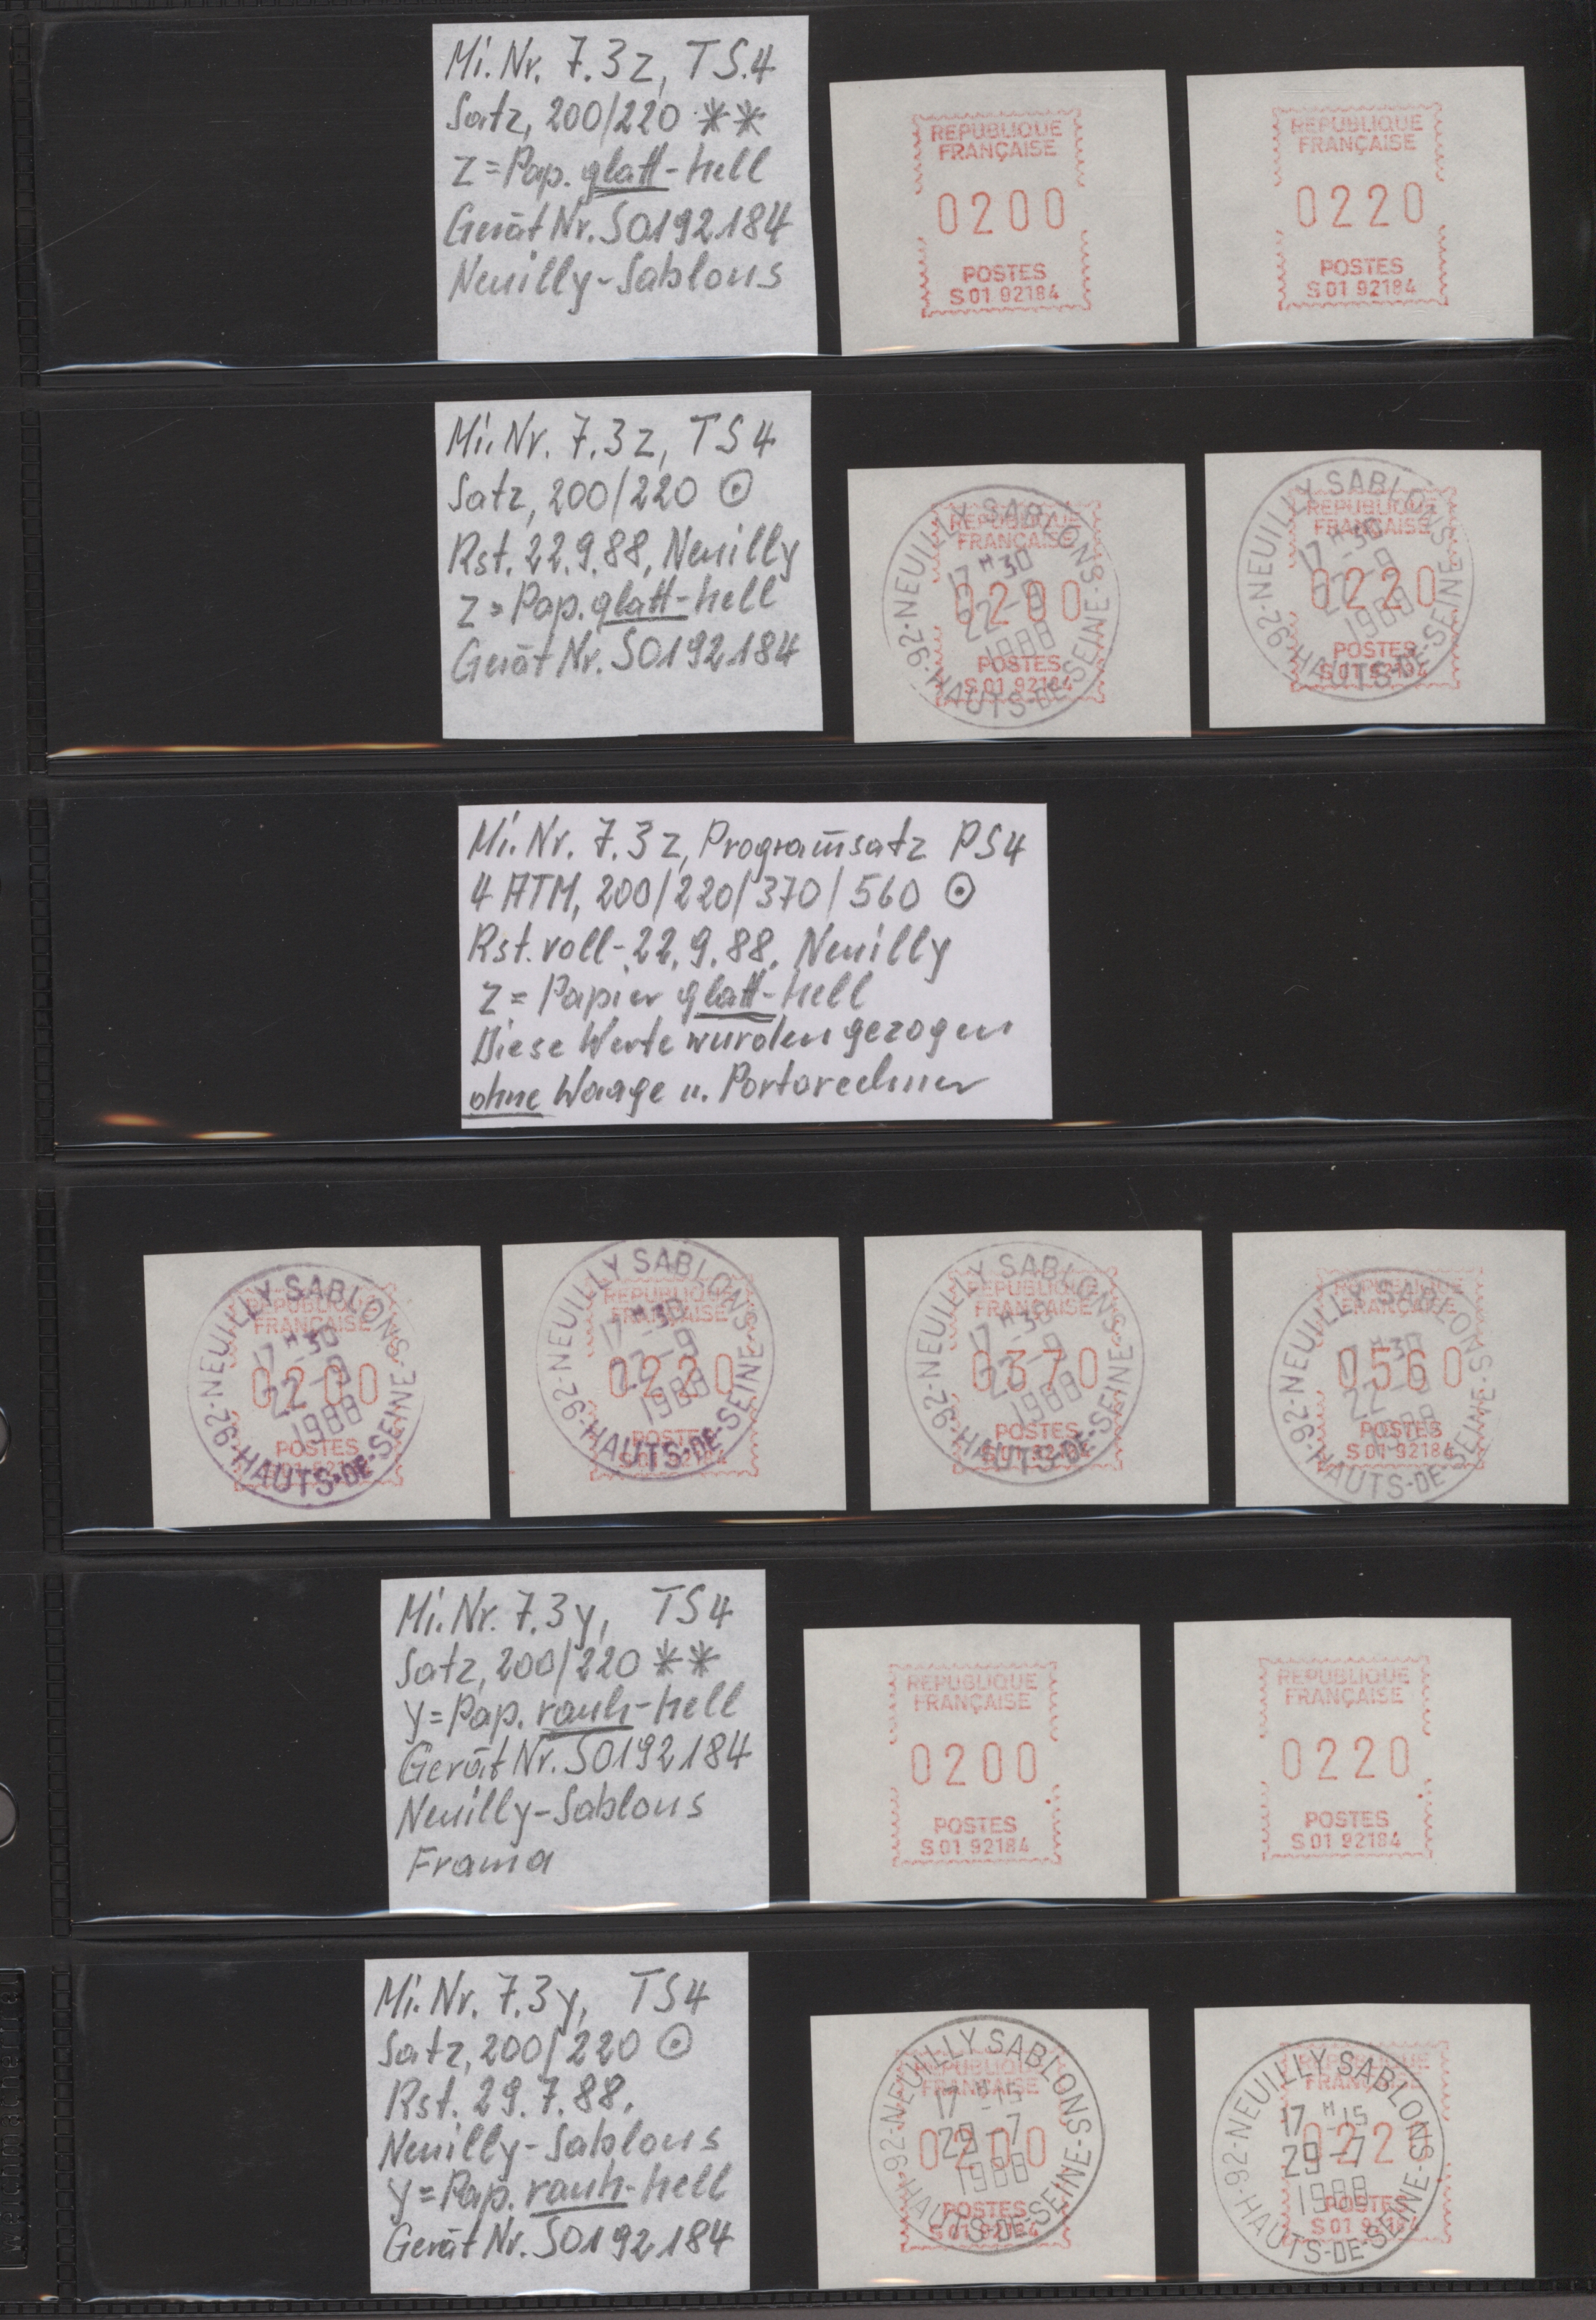 Mi. Nr. 7.3z, TS.4
Satz, 200/220 **
z = Pap. glatt-hell
Gerät Nr. S0192184
Neuilly-Sablons
REPUBLIQUE
FRANÇAISE
0200
POSTES
S 01 92184
REPUBLIQUE
FRANÇAISE
0220
POSTES
S 01 92184
Mi. Nr. 7.3z, TS4
Satz, 200/220 ⊙
Rst. 22.9.88, Neuilly
z = Pap. glatt-hell
Gerät Nr. S0192184
REPUBLIQUE
FRANÇAISE
0200
POSTES
S 01 92184
92-NEUILLY SABLONS
17 H 30
22-9
1988
HAUTS-DE-SEINE
REPUBLIQUE
FRANÇAISE
0220
POSTES
S 01 92184
92-NEUILLY SABLONS
17 H 30
22-9
1988
HAUTS-DE-SEINE
Mi. Nr. 7.3z, Programm̄satz PS4
4 ATM, 200/220/370/560 ⊙
Rst. voll-22.9.88, Neuilly
z = Papier glatt-hell
Diese Werte wurden gezogen
ohne Waage u. Portorechner
REPUBLIQUE
FRANÇAISE
0200
POSTES
92-NEUILLY SABLONS
17 H-30
22-9
1988
HAUTS-DE-SEINE
REPUBLIQUE
FRANÇAISE
0220
POSTES
S 01 92184
92-NEUILLY SABLONS
17 H-30
22-9
1988
HAUTS-DE-SEINE
REPUBLIQUE
FRANÇAISE
0370
POSTES
S 01 92184
92-NEUILLY SABLONS
17 H-30
22-9
1988
HAUTS-DE-SEINE
REPUBLIQUE
FRANÇAISE
0560
POSTES
S 01 92184
92-NEUILLY SABLONS
H-30
22-9
1988
HAUTS-DE-SEINE
Mi. Nr. 7.3y, TS4
Satz, 200/220 **
y = Pap. rauh-hell
Gerät Nr. S0192184
Neuilly-Sablons
Frama
REPUBLIQUE
FRANÇAISE
0200
POSTES
S 01 92184
REPUBLIQUE
FRANÇAISE
0220
POSTES
S 01 92184
Mi. Nr. 7.3y, TS4
Satz, 200/220 ⊙
Rst. 29.7.88,
Neuilly-Sablons
y = Pap. rauh-hell
Gerät Nr. S0192184
REPUBLIQUE
FRANÇAISE
0200
POSTES
S 01 92184
92-NEUILLY SABLONS
17 H-15
29-7
1988
HAUTS-DE-SEINE
REPUBLIQUE
FRANÇAISE
022
POSTES
S 01 92184
92-NEUILLY SABLONS
17 H 15
29-7
1988
HAUTS-DE-SEINE